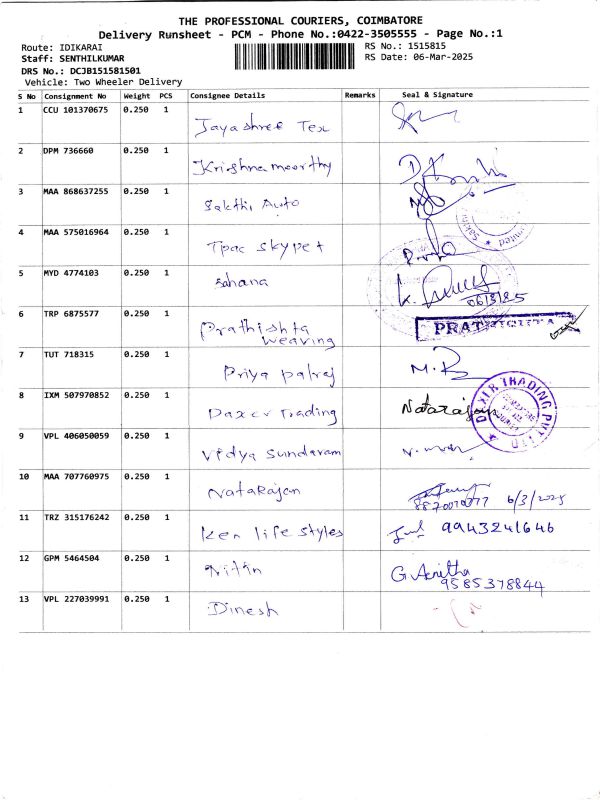 THE PROFESSIONAL COURIERS, COIMBATORE
Delivery Runsheet - PCM - Phone No.:0422-3505555 - Page No.:1
Route: IDIKARAI RS No.: 1515815
Staff: SENTHILKUMAR RS Date: 06-Mar-2025
DRS No.: DCJB151581501
Vehicle: Two Wheeler Delivery
S No Consignment No Weight PCS Consignee Details Remarks Seal & Signature
1 CCU 101370675 0.250 1 Jayashree Tex
2 DPM 736660 0.250 1 Krishnamoorthy
3 MAA 868637255 0.250 1 Sakthi Auto
4 MAA 575016964 0.250 1 Tpac skypet
5 MYD 4774103 0.250 1 Sahana
06/3/25
6 TRP 6875577 0.250 1 Prathishta
weaving
7 TUT 718315 0.250 1 Priya palraj M.R
8 IXM 507970852 0.250 1 Daxer Trading Natarajan
9 VPL 406050059 0.250 1 Vidya Sundaram
10 MAA 707760975 0.250 1 Natarajan
6/3/2025
11 TRZ 315176242 0.250 1 Ken life styles 9943241646
12 GPM 5464504 0.250 1 Nitin
9585378844
13 VPL 227039991 0.250 1 Dinesh